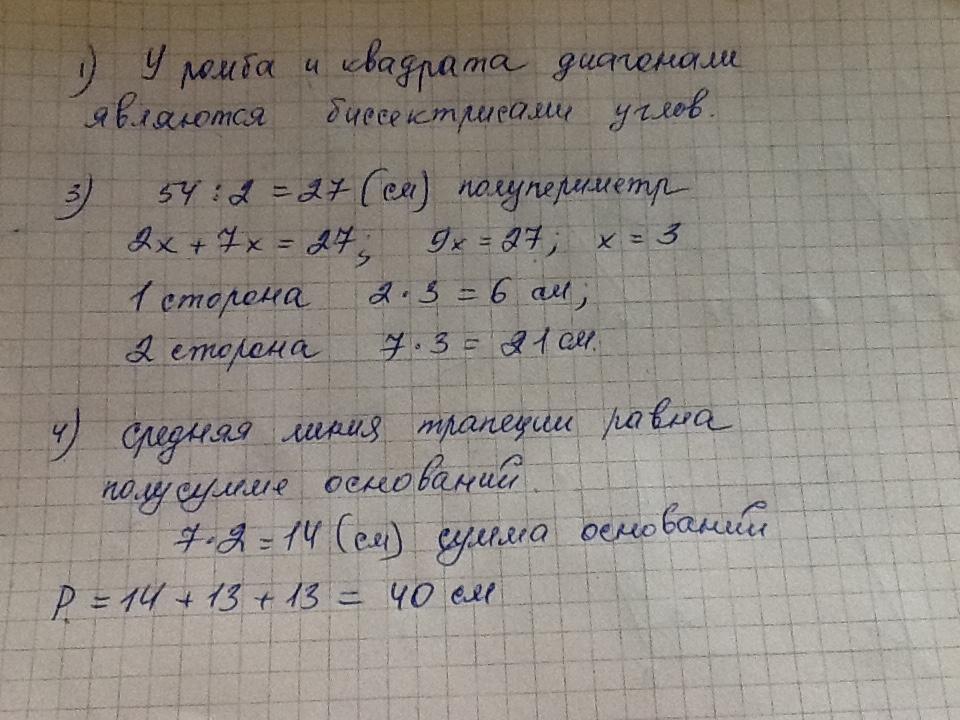 1) У ромба и квадрата диагонали
являются биссектрисами углов.
3) 54 : 2 = 27 (см) полупериметр
2x + 7x = 27; 9x = 27; x = 3
1 сторона 2 · 3 = 6 см;
2 сторона 7 · 3 = 21 см.
4) средняя линия трапеции равна
полусумме оснований.
7 · 2 = 14 (см) сумма оснований
P. = 14 + 13 + 13 = 40 см